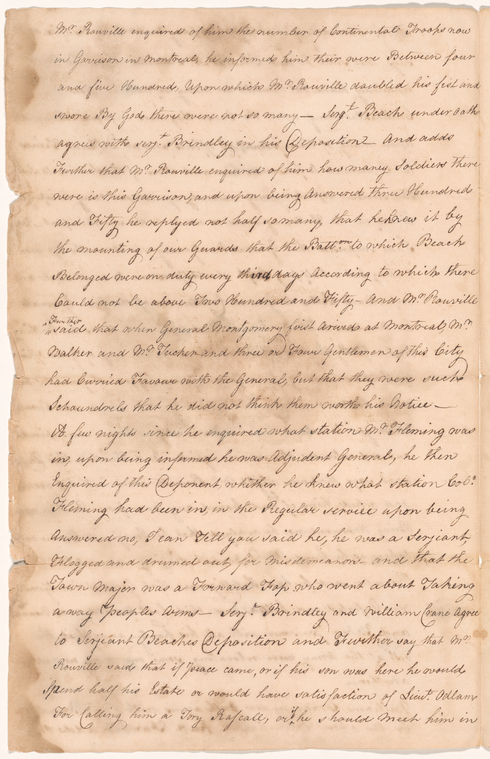 Mr. Rouville enquired of him the number of Continental Troops now
in Garrison in Montreal, he informed him their were Between four
and five Hundred, Upon which Mr. Rouville doubled his fist and
swore By God there were not so many — Serjt. Beach under Oath
agrees with serjt. Brindley in his Deposition — And adds
Further that Mr. Rouville enquired of him how maney Soldiers there
were in this Garrison, and upon being Answered three Hundred
and Fifty he replyed not half so many, that he knew it by
the mounting of our Guards that the Battn. to which Beach
Belonged were on duty every third day According to which there
Could not be above Two Hundred and Fifty — And Mr. Rouville
Further
said, that when General Montgomery first arived at Montreal Mr.
Walker and Mr. Tucker and three or Fower Gentlemen of this City
had Curried Favour with the General, but that they were such
Schoundrels that he did not think them worth his Notice —
A few nights since he enquired what station Mr. Fleming was
in, upon being informed he was Adjudent General, he then
Enquired of this Deponent whether he knew what station Col.
Fleming had been in, in the Regular service upon being
Answered no, I can Tell you said he, he was a Serjeant,
Flogged and drumed out, for Misdemeanor and that the
Town Major was a Forward Fop who went about Taking
a way peoples Arms — Serjt. Brindley and William Crane Agree
to Serjeant Beaches Deposition and Further say that Mr.
Rouville said that if peace came, or if his son was here he would
Spend half his Estate or would have satisfaction of Lieut. Adlam
For Calling him a Tory Rascall, or if he should meet him in